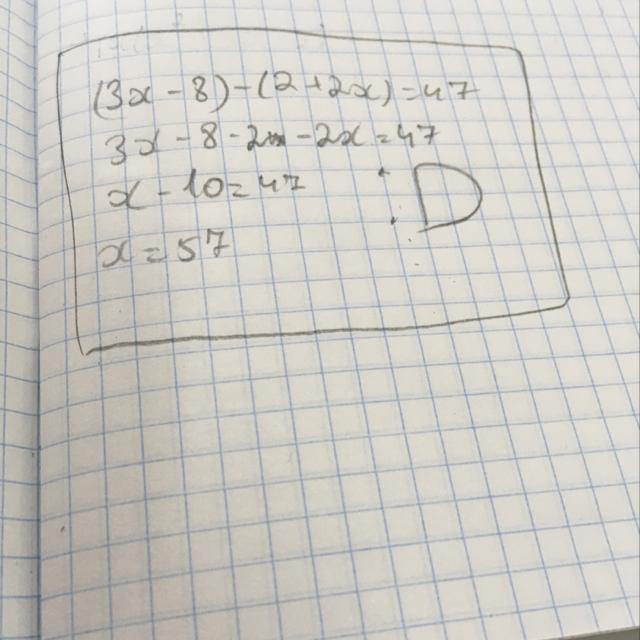 (3x - 8) - (2 + 2x) = 47
3x - 8 - 2 - 2x = 47
x - 10 = 47 :D
x = 57